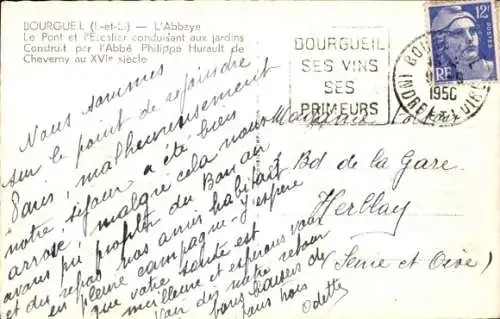 BOURGUEIL (I.-et-L.) — L'Abbaye
Le Pont et l'Escalier conduisant aux jardins
Construit par l'Abbé Philippe Hurault de
Cheverny au XVIe siècle
BOURGUEIL
SES VINS
SES
PRIMEURS
12F
RF
1950
INDRE ET LOIRE
Nous sommes
sur le point de rejoindre
Paris, malheureusement
notre séjour a été bien
arrosé, malgré cela nous
avons pu profiter du Bon air
et du repos nos amis habitant
en pleine campagne - J'espère
que votre santé est
meilleure et espérons vous
voir dès notre retour
bons baisers de
tous trois
Odette
Bd de la Gare
Herblay
(Seine et Oise)